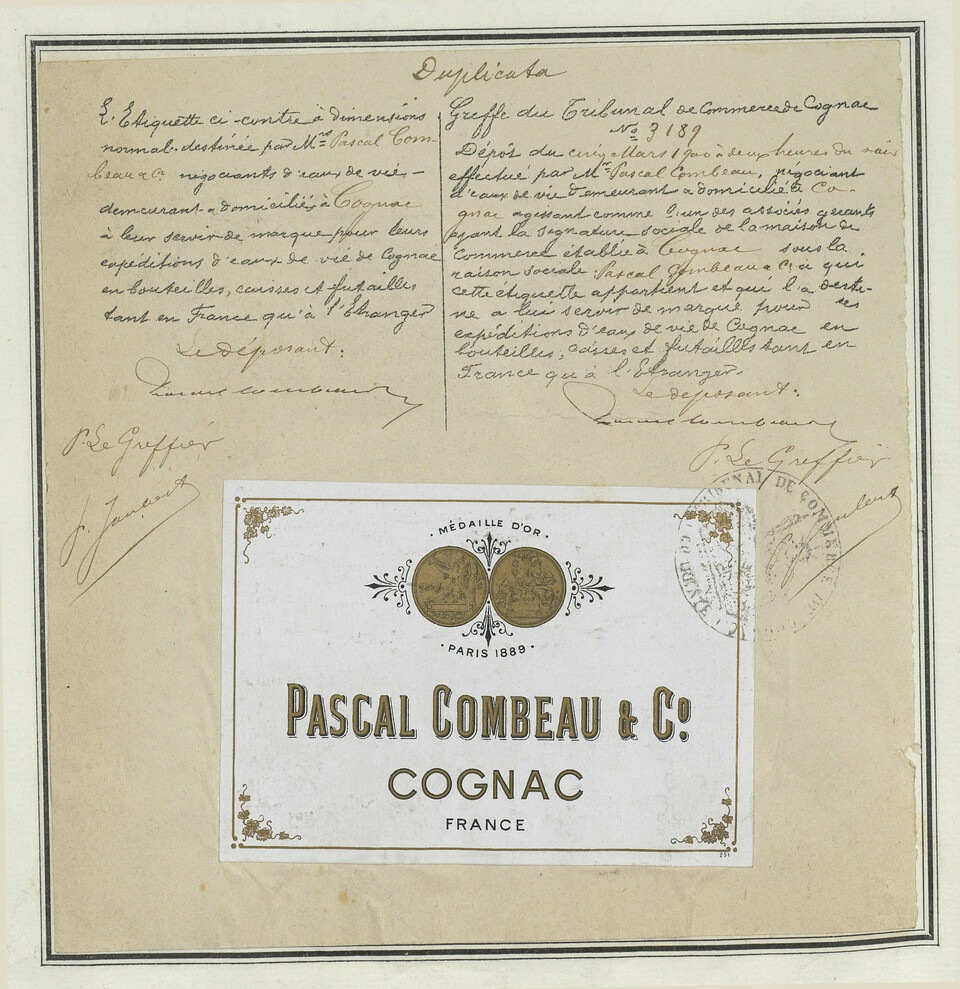 Duplicata
L'Etiquette ci-contre à dimensions
normal destinée par M.rs Pascal Com-
beau & C.o négociants d'eaux de vie-
demeurant & domiciliés à Cognac
à leur servir de marque pour leurs
expéditions d'eaux de vie de Cognac
en bouteilles, caisses et futailles
tant en France qu'à l'Etranger
Le déposant:
P. Le Greffier
Greffe du Tribunal de Commerce de Cognac
No 3189
Dépôt du cinq Mars 1900 à deux heures du soir
effectué par M.r Pascal Combeau, négociant
d'eaux de vie demeurant & domicilié à Co-
gnac agissant comme l'un des associés gérants
ayant la signature sociale de la maison de
Commerce établie à Cognac sous la
raison sociale Pascal Combeau & C.o à qui
cette étiquette appartient et qui l'a desti-
née à lui servir de marque pour ses
expéditions d'eaux de vie de Cognac en
bouteilles, caisses et futailles tant en
France qu'à l'Etranger.
Le déposant:
P. Le Greffier
TRIBUNAL DE COMMERCE
MÉDAILLE D'OR
PARIS 1889
PASCAL COMBEAU & Co.
COGNAC
FRANCE
251